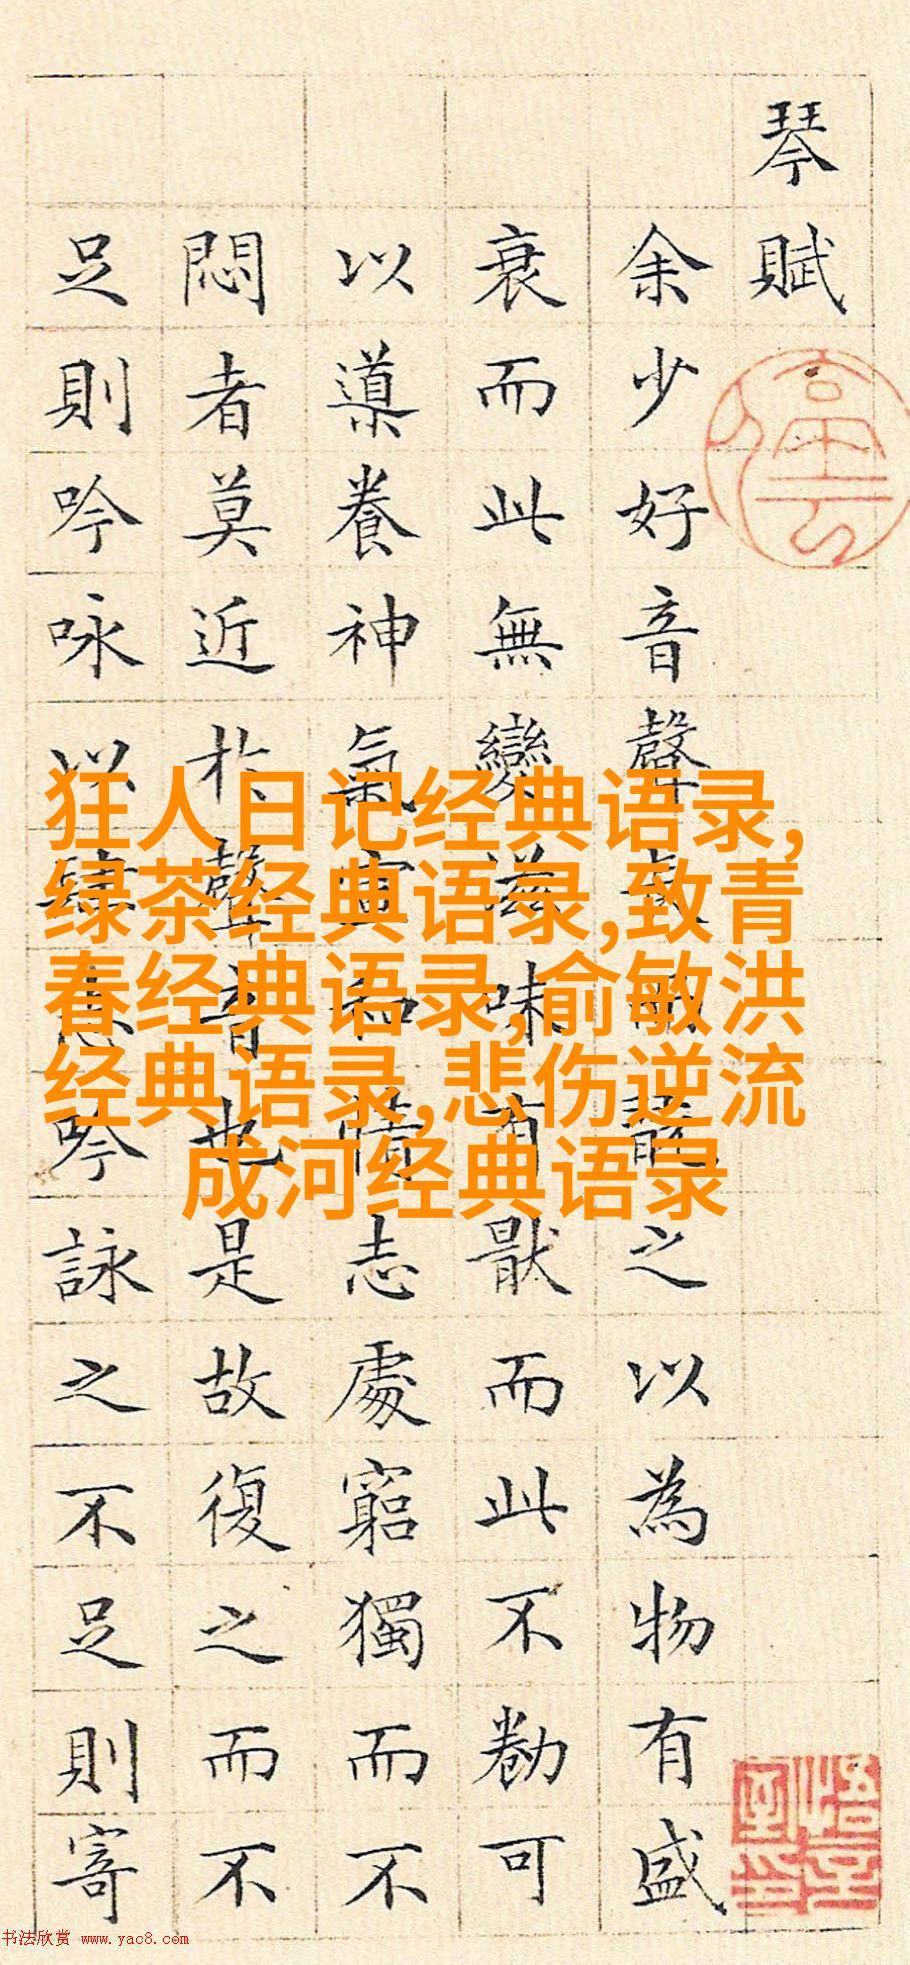 琴賦
余少好音聲之以為物有盛
衰而此無變滋味有猒而此不勌可
以導養神氣宣和情志處窮獨而不
悶者莫近於聲音也是故復之而不
足則吟咏以肆志吟詠之不足則寄
狂人日记经典语录,
绿茶经典语录,致青
春经典语录,俞敏洪
经典语录,悲伤逆流
成河经典语录
书法欣赏 www.yac8.com